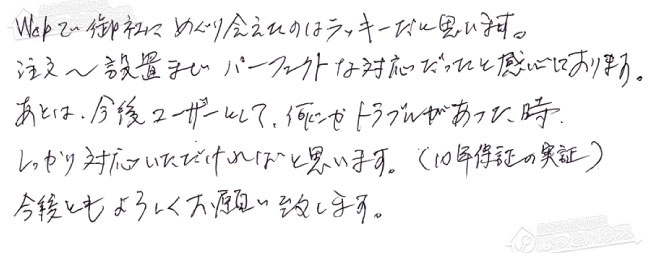 Webで御社にめぐり会えたのはラッキーだと思います。
注文～設置までパーフェクトな対応だったと感心しております。
あとは、今後ユーザーとして、何かトラブルがあった時、
しっかり対応いただければと思います。（10年保証の実証）
今後ともよろしくお願い致します。